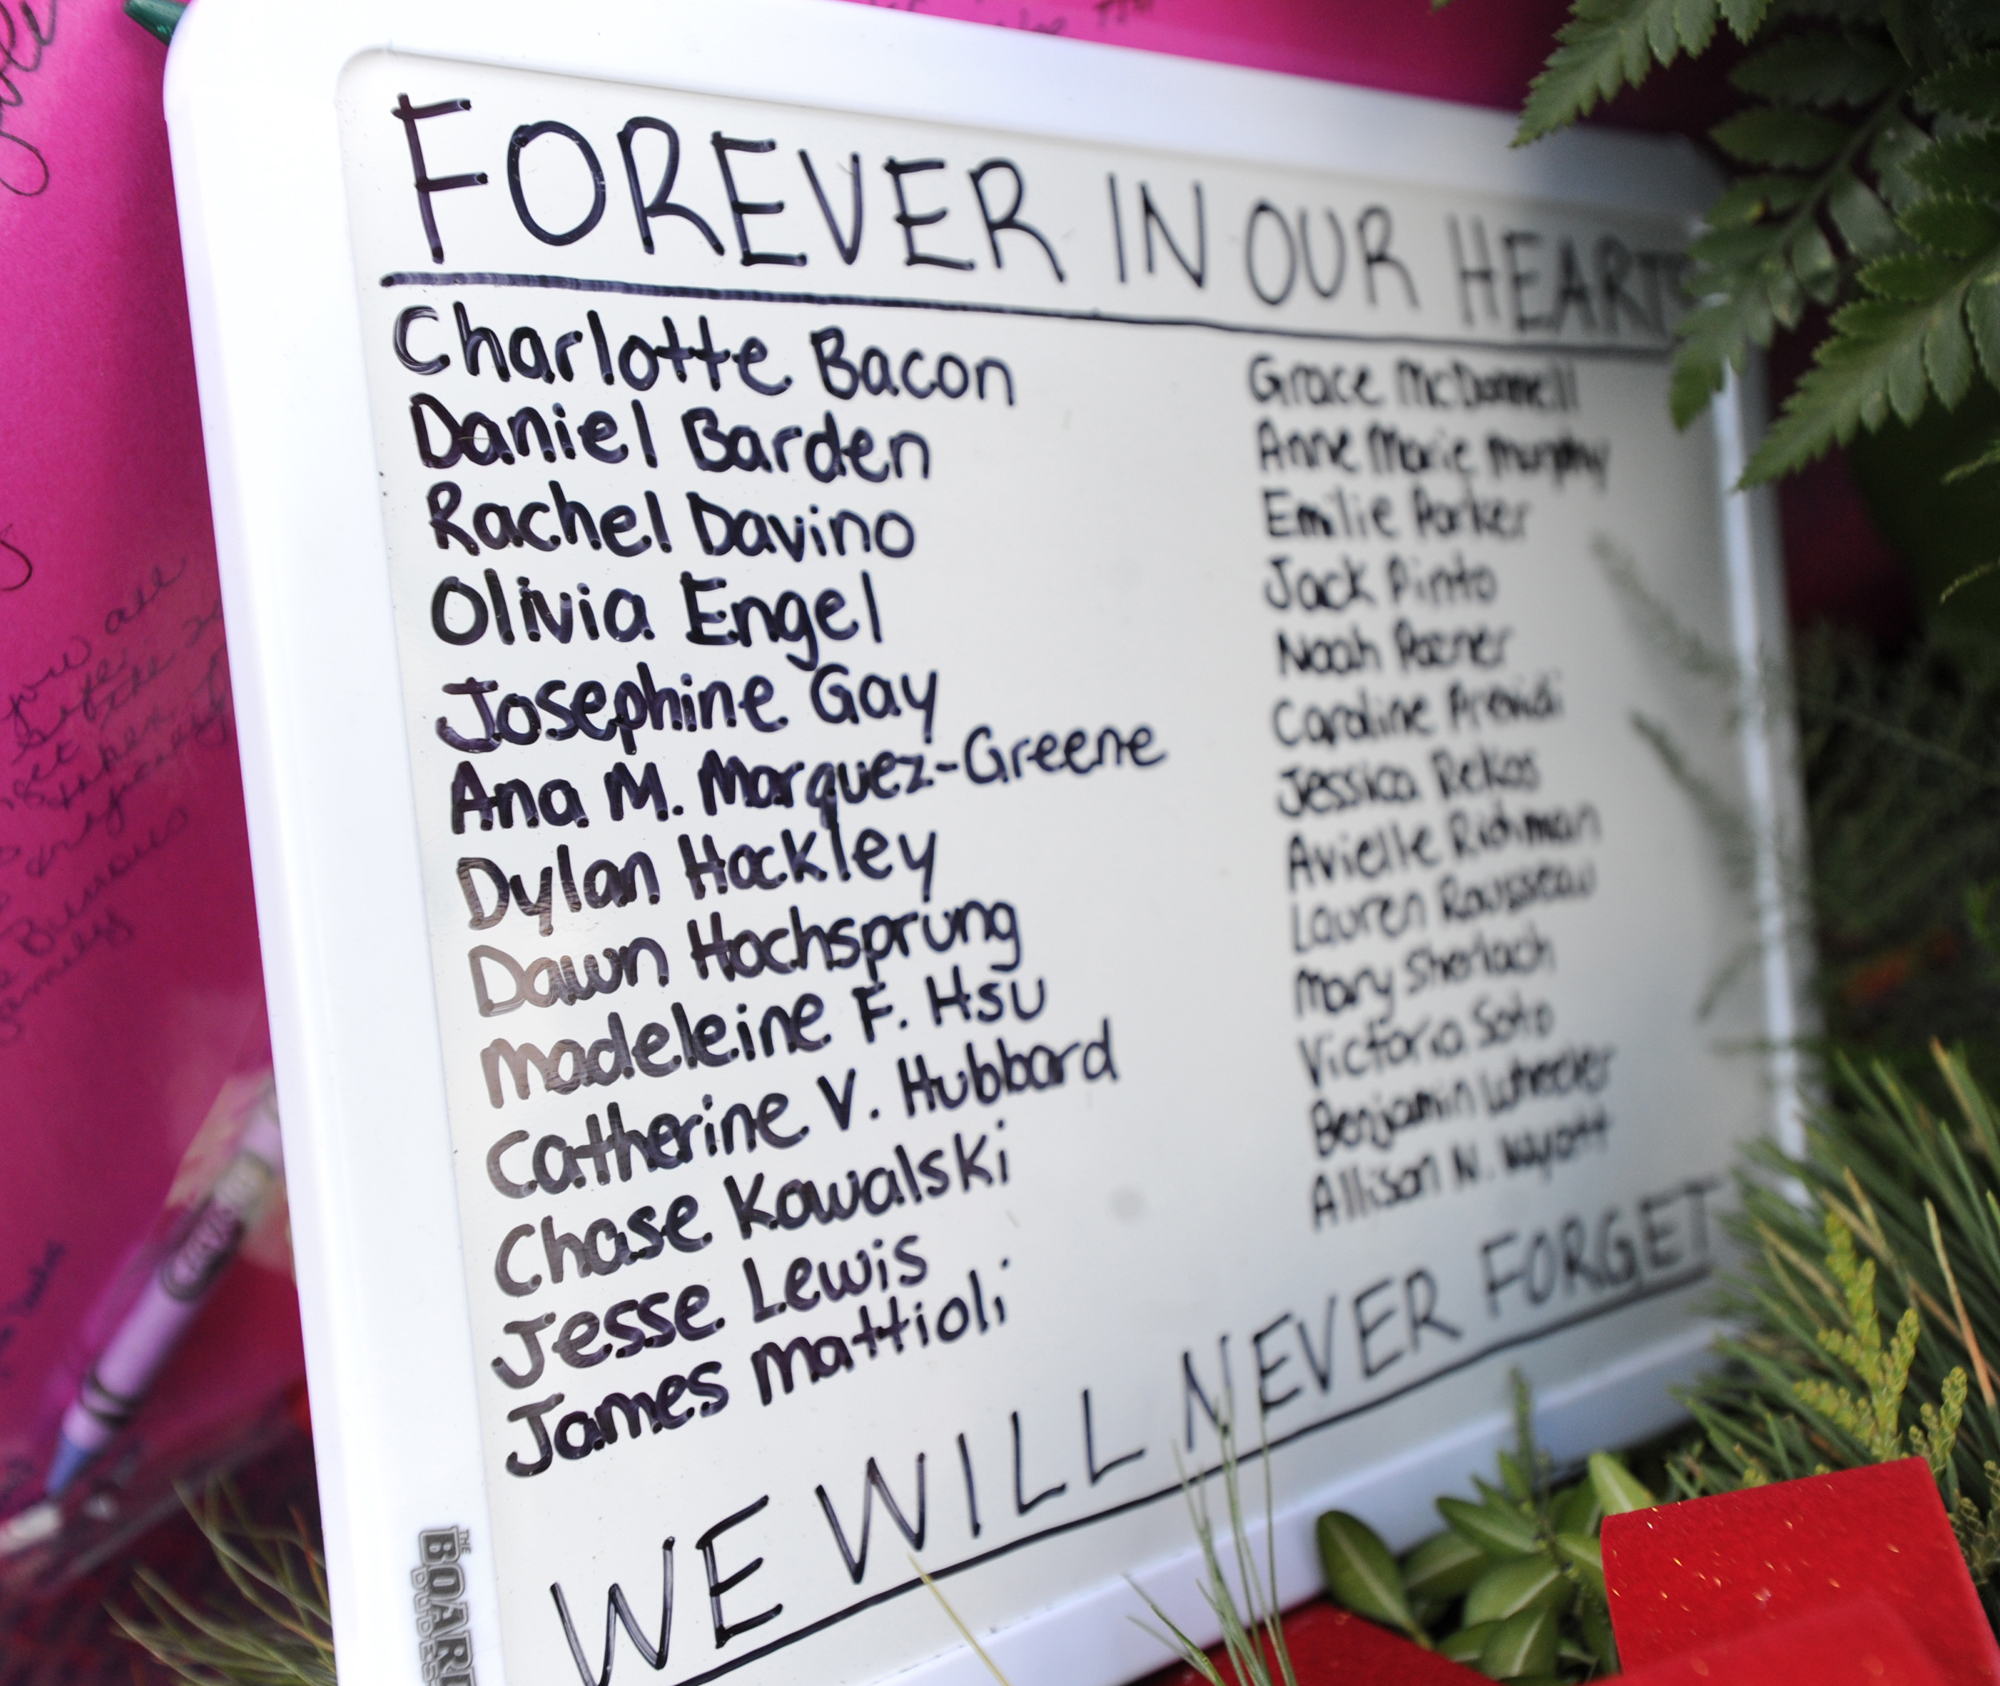 FOREVER IN OUR HEARTS
Charlotte Bacon
Daniel Barden
Rachel Davino
Olivia Engel
Josephine Gay
Ana M. Marquez-Greene
Dylan Hockley
Dawn Hochsprung
Madeleine F. Hsu
Catherine V. Hubbard
Chase Kowalski
Jesse Lewis
James Mattioli
Grace McDonnell
Anne Marie Murphy
Emilie Parker
Jack Pinto
Noah Pozner
Caroline Previdi
Jessica Rekos
Avielle Richman
Lauren Rousseau
Mary Sherlach
Victoria Soto
Benjamin Wheeler
Allison N. Wyatt
WE WILL NEVER FORGET
THE
BOARD
DUDES
you all
family